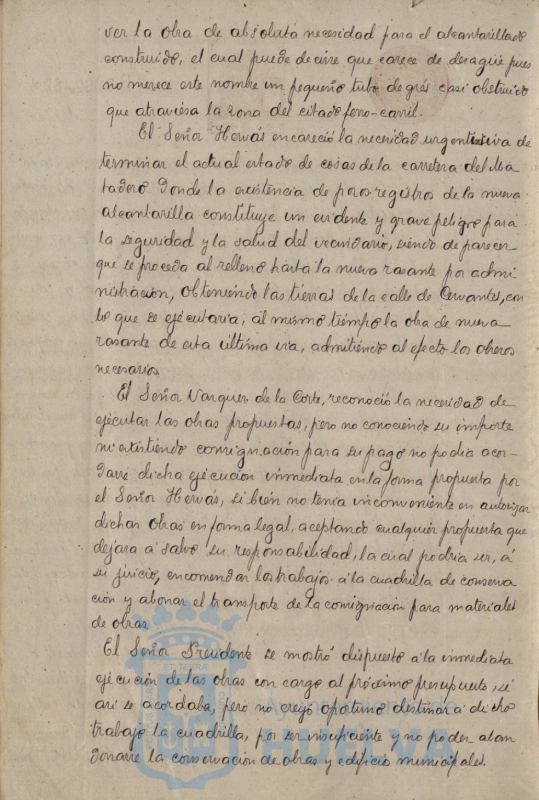 ver la obra de absoluta necesidad para el alcantarillado
construido, el cual puede decirse que carece de desagüe pues
no merece este nombre un pequeño tubo de grés casi obstruido
que atraviesa la zona del citado ferro-carril.
El Señor Hervás encareció la necesidad urgentísima de
terminar el actual estado de cosas de la carretera del Ma-
tadero donde la existencia de pozos registros de la nueva
alcantarilla constituye un evidente y grave peligro para
la seguridad y la salud del vecindario, siendo de parecer
que se proceda al relleno hasta la nueva rasante por admi
nistración, obteniendo las tierras de la calle de Cervantes, con
lo que se ejecutaría, al mismo tiempo la obra de nueva
rasante de esta última vía, admitiendo al efecto los obreros
necesarios.
El Señor Vazquez de la Corte, reconoció la necesidad de
ejecutar las obras propuestas, pero no conociendo su importe
ni existiendo consignación para su pago no podía acor-
darse dicha ejecución inmediata en la forma propuesta por
el Señor Hervás, si bien no tenía inconveniente en autorizar
dichas obras en forma legal, aceptando cualquier propuesta que
dejara á salvo su responsabilidad, la cual podría ser, á
su juicio, encomendar los trabajos á la cuadrilla de conserva
ción y abonar el transporte de la consignación para materiales
de obras.
El Señor Presidente se mostró dispuesto á la inmediata
ejecución de las obras con cargo al próximo presupuesto, si
así se acordaba, pero no creyó oportuno destinar á dicho
trabajo la cuadrilla, por ser insuficiente y no poder aban
donarse la conservación de obras y edificio municipales.
HUELVA